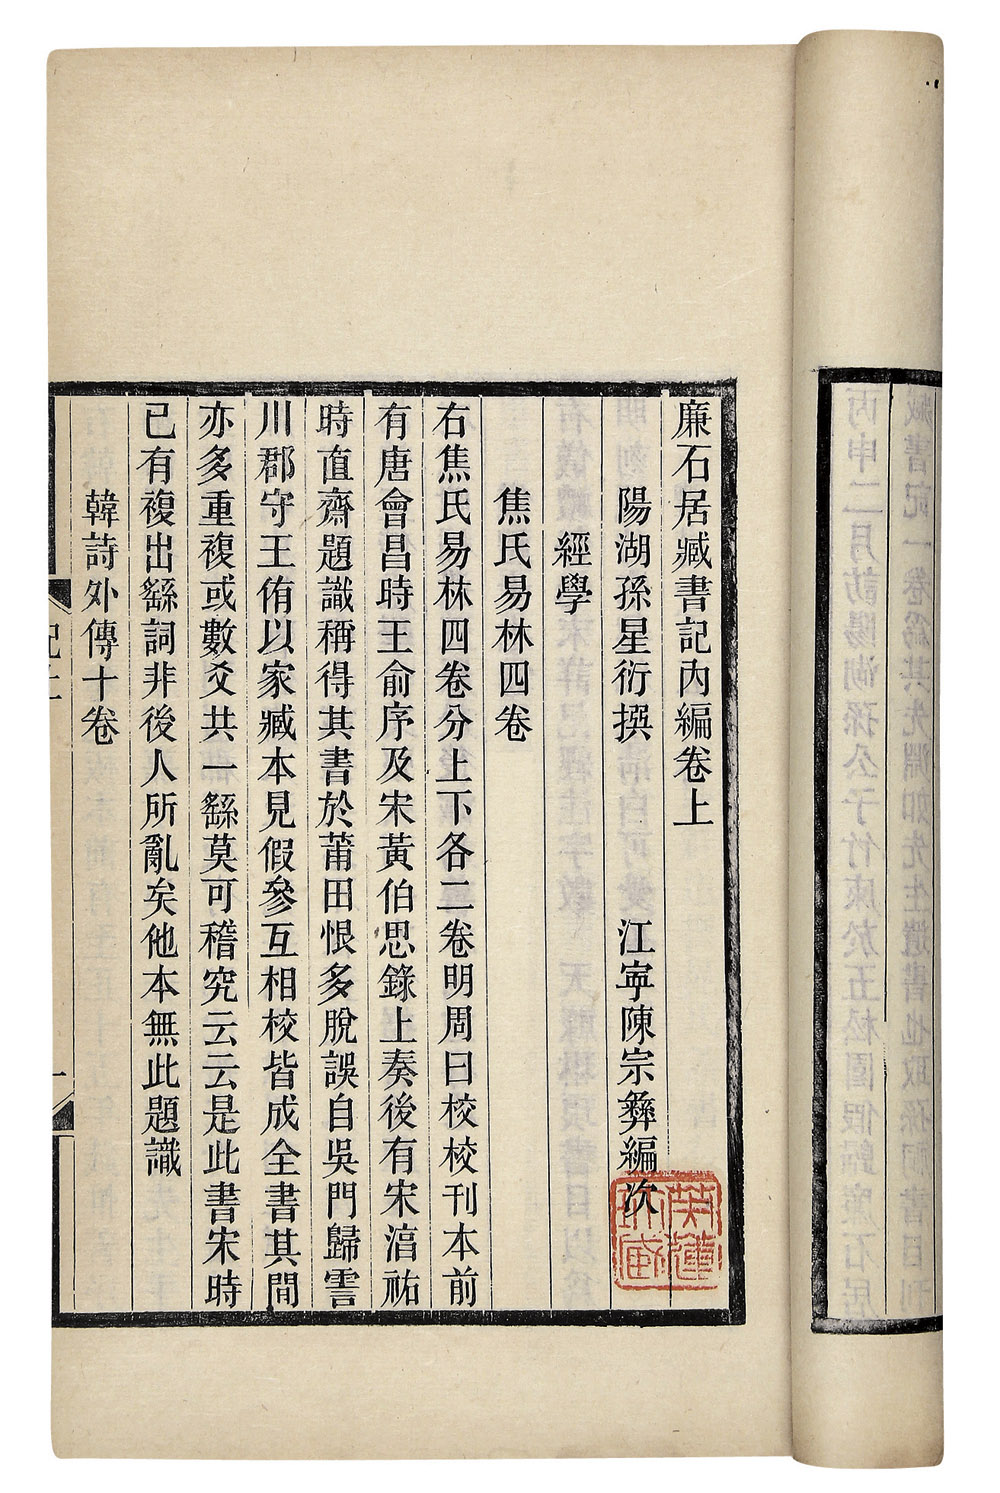 廉石居臧書記內編卷上
陽湖孫星衍撰 江寧陳宗彝編次
經學
焦氏易林四卷
右焦氏易林四卷分上下各二卷明周曰校校刊本前
有唐會昌時王俞序及宋黃伯思錄上奏後有宋淳祐
時直齋題識稱得其書於莆田恨多脫誤自吳門歸霅
川郡守王侑以家臧本見假參互相校皆成全書其閒
亦多重複或數爻共一繇莫可稽究云云是此書宋時
已有複出繇詞非後人所亂矣他本無此題識
韓詩外傳十卷
記上
一